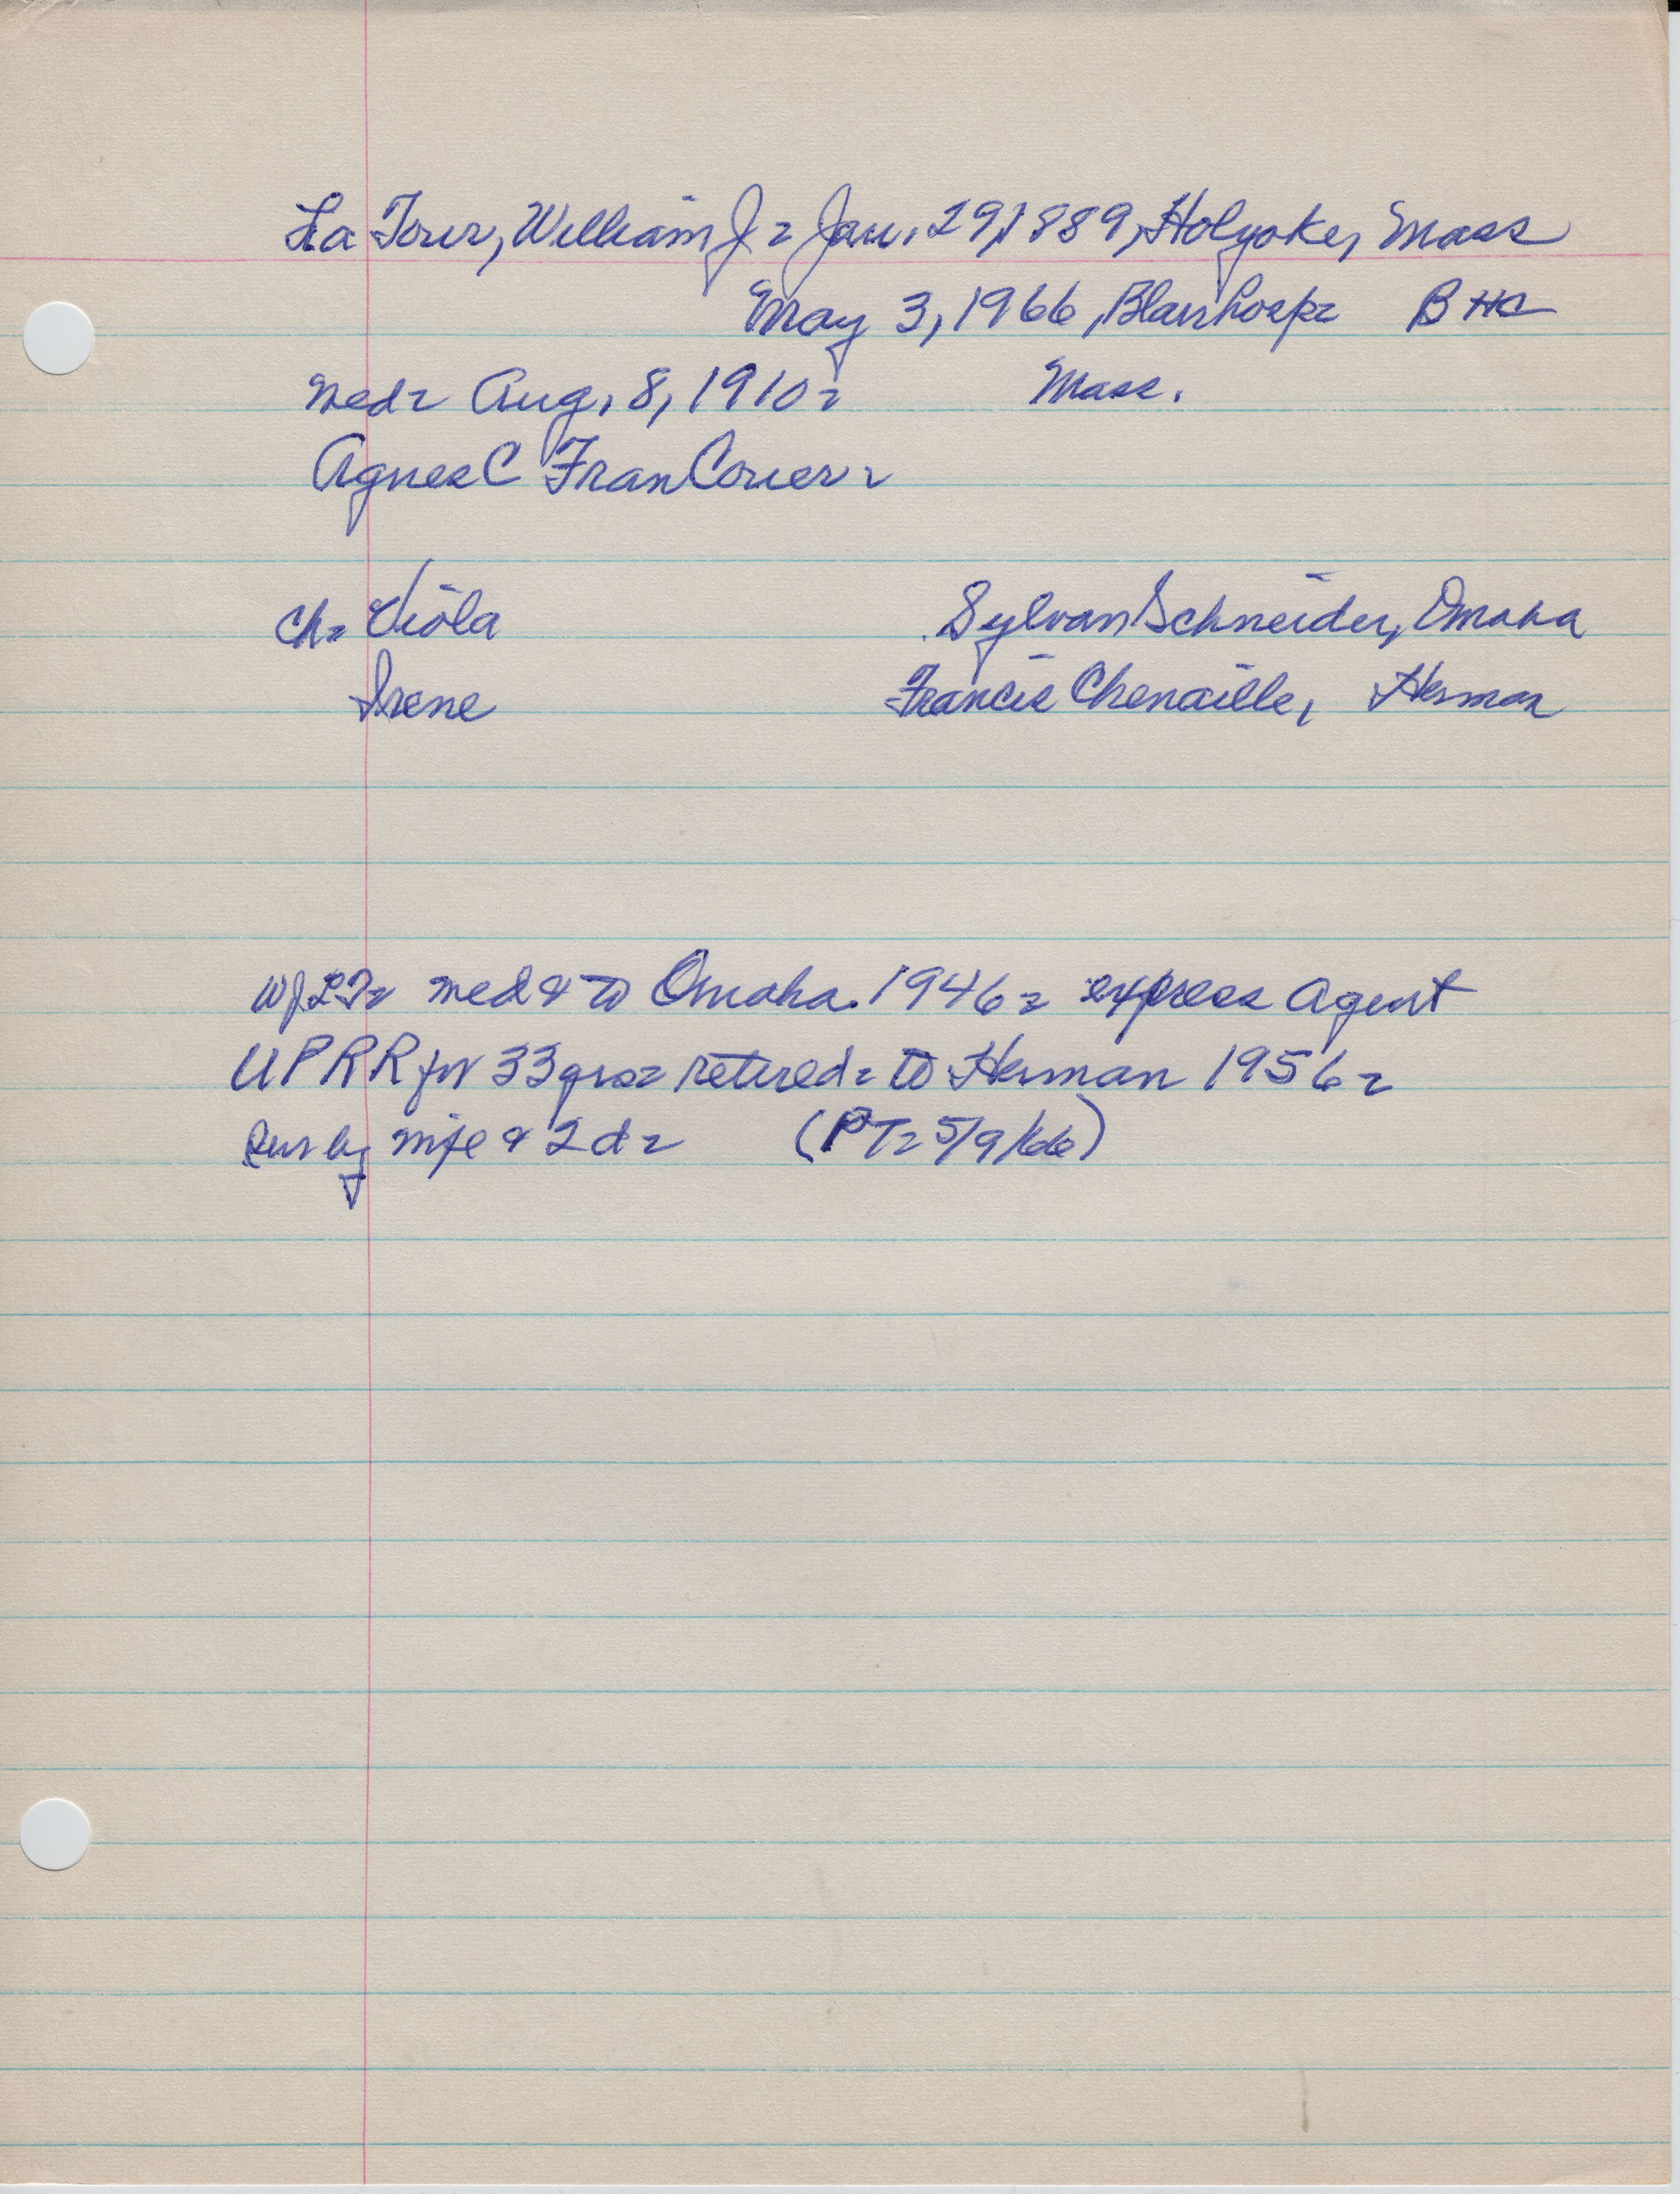 La Tour, William J - Jan. 29, 1889, Holyoke, Mass
May 3, 1966, Blairhosp - B HC
med - Aug. 8, 1910 - Mass.
Agnes C FranCouer -
Ch - Viola Sylvan Schneider, Omaha
Irene Francis Chenaille, Herman
WJLT - med & to Omaha. 1946 - express agent
UPRR for 33 yrs - retired - to Herman 1956 -
Sur by wife & 2 d - (PT - 5/9/66)